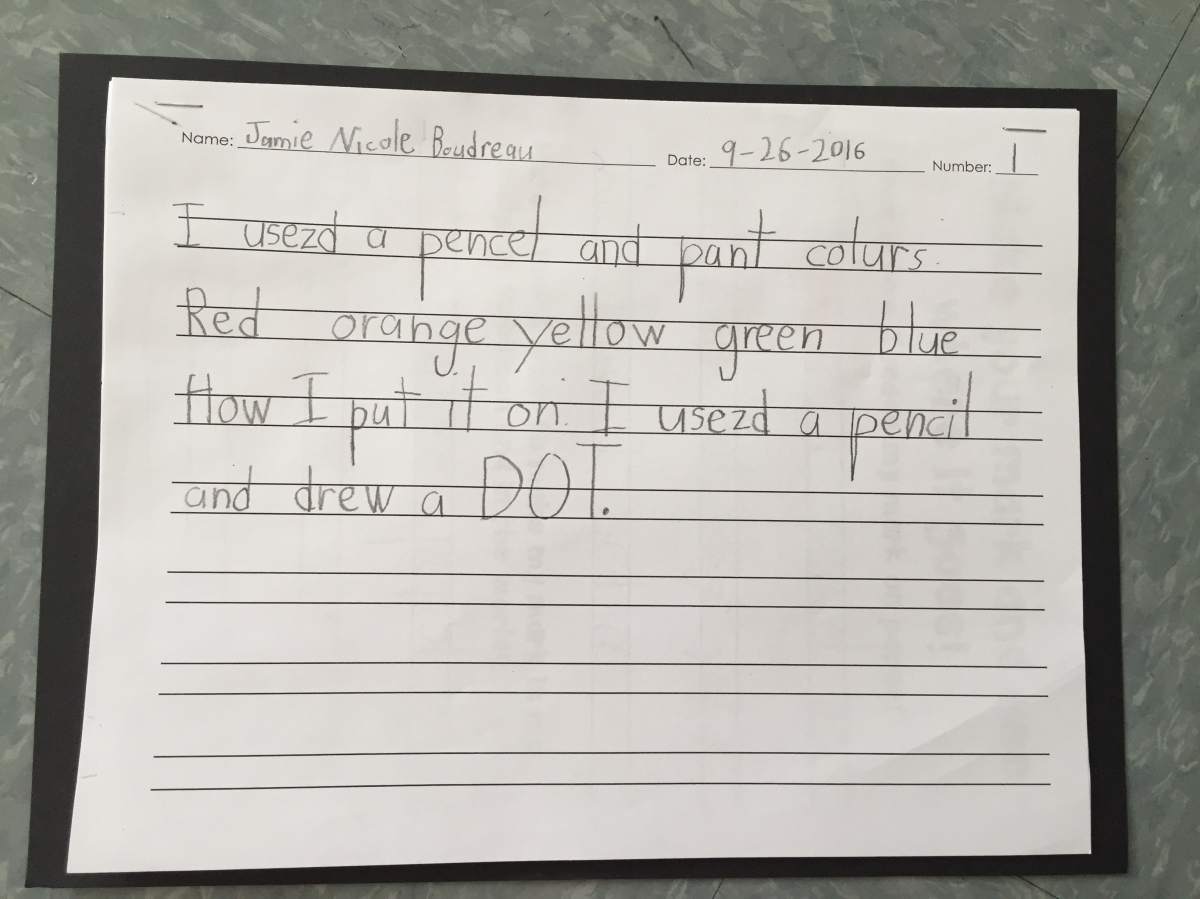 Name: Jamie Nicole Boudreau Date: 9-26-2016 Number: 1
I usezd a pencel and pant colurs.
Red orange yellow green blue
How I put it on. I usezd a pencil
and drew a DOT.